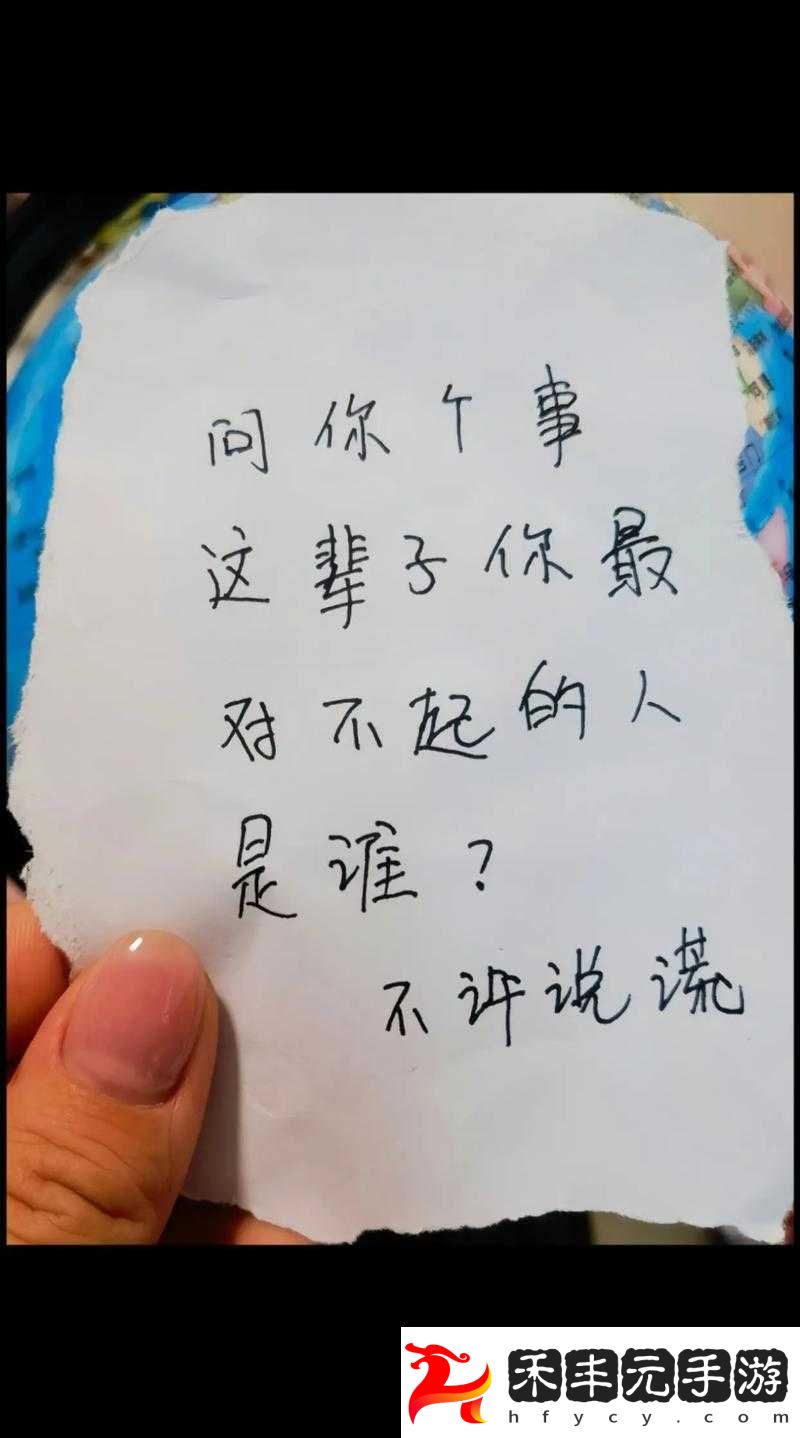 问你个事
这辈子你最
对不起的人
是谁?
不许说谎
禾丰元手游
hfycy.com